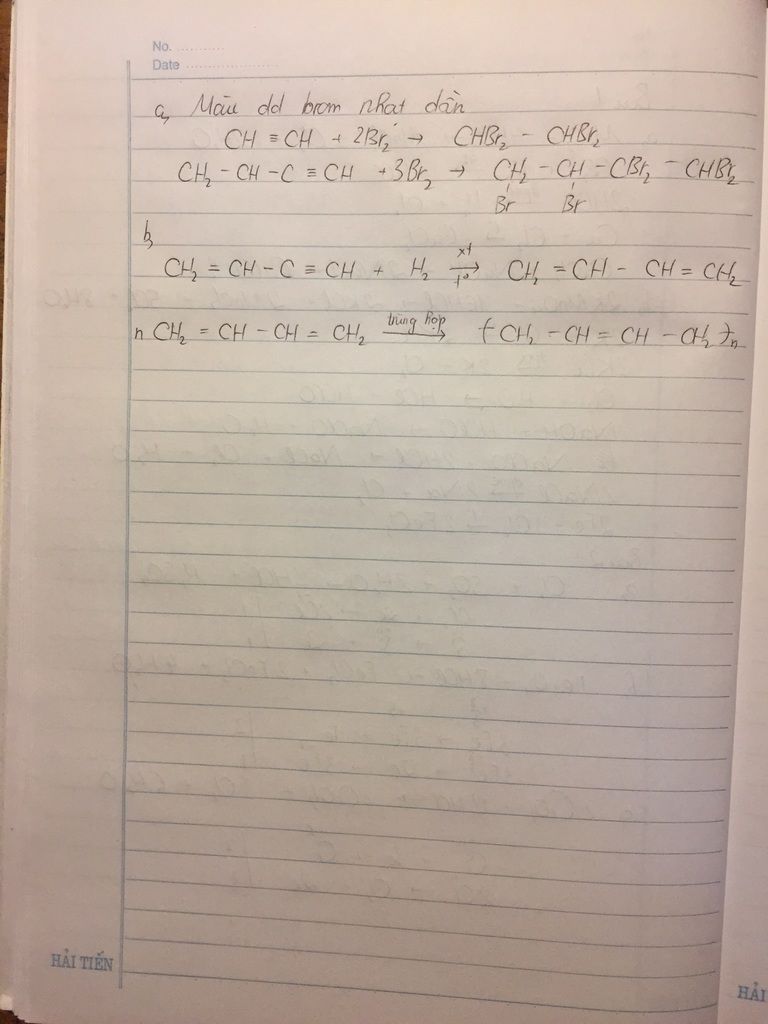 No. ...........
Date .....................
a, Màu dd brom nhạt dần
CH ≡ CH + 2Br₂ → CHBr₂ - CHBr₂
CH₂ - CH - C ≡ CH + 3Br₂ → CH₂ - CH - CBr₂ - CHBr₂
Br Br
b,
CH₂ = CH - C ≡ CH + H₂ xt t° → CH₂ = CH - CH = CH₂
n CH₂ = CH - CH = CH₂ trùng hợp → (CH₂ - CH = CH - CH₂)n
HẢI TIẾN
HẢI